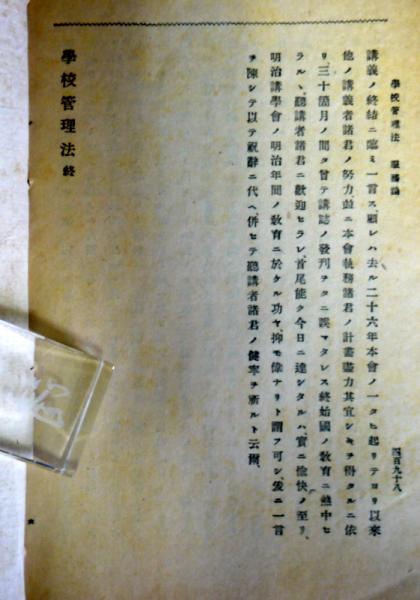 學校管理法　服務論
四百九十八
講義ノ終結ニ臨ミ一言ス顧レハ去ル二十六年本會ノ一タヒ起リテヨリ以來
他ノ講義者諸君ノ努力、並ニ本會執務諸君ノ計畫盡力其宜シキヲ得タルニ依
リ、三十箇月ノ間タ曾テ講誌ノ發刊ヲタニ誤マタレス終始國ノ敎育ニ熱中セ
ラル、聽講者諸君ニ歡迎セラレ、首尾能ク今日ニ達シタルハ、實ニ愉快ノ至リ、
明治講學會ノ明治年間ノ敎育ニ於ケル功ヤ、抑モ偉ナリト謂フ可シ、爰ニ一言
ヲ陳シテ以テ祝辭ニ代ヘ、併セテ聽講者諸君ノ健寧ヲ祈ルト云爾、
學校管理法 終